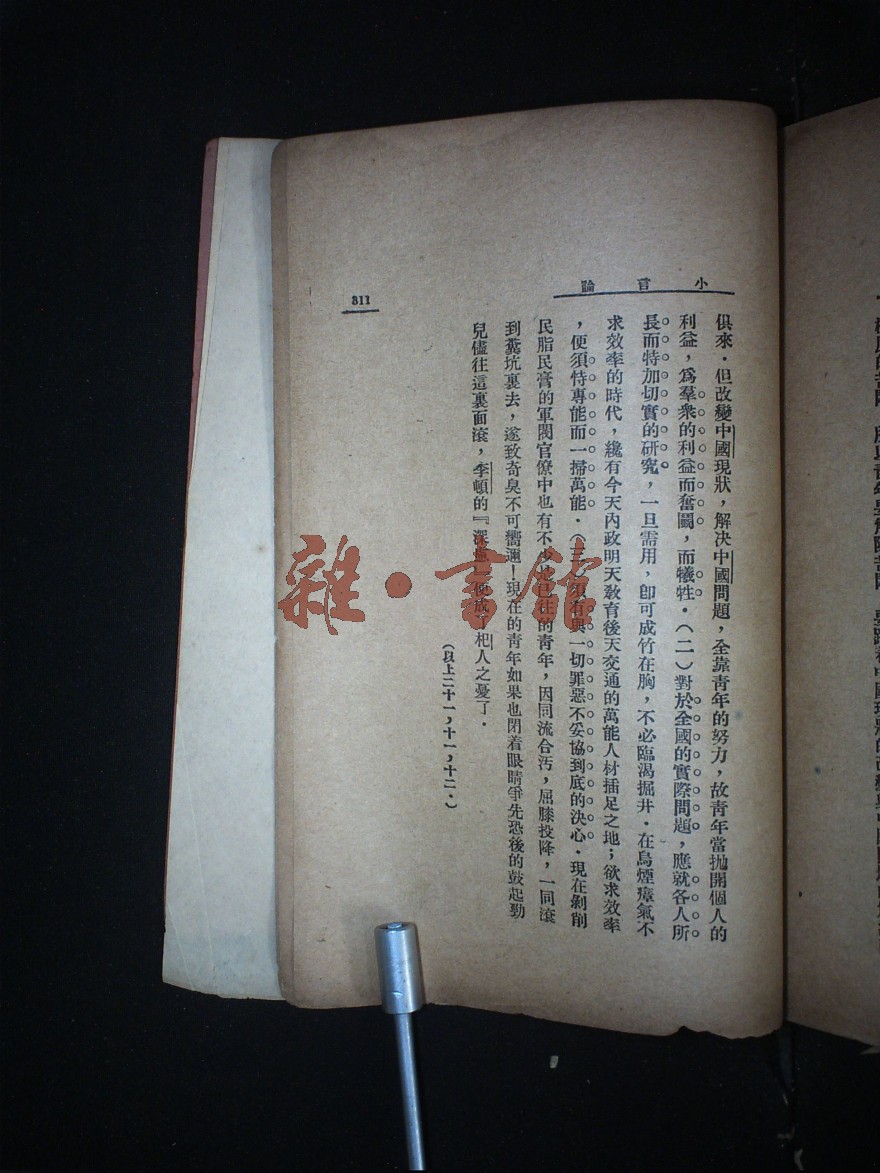 小言論
俱來．但改變中國現狀，解決中國問題，全靠青年的努力，故青年當拋開個人的
利益，爲羣衆的利益而奮鬭，而犧牲．（二）對於全國的實際問題，應就各人所
長而特加切實的研究，一旦需用，卽可成竹在胸，不必臨渴掘井．在烏煙瘴氣不
求效率的時代，纔有今天內政明天敎育後天交通的萬能人材插足之地；欲求效率
，便須恃專能而一掃萬能．（三）須有與一切罪惡不妥協到底的決心．現在剝削
民脂民膏的軍閥官僚中也有不少是已往的青年，因同流合汚，屈膝投降，一同滾
到糞坑裏去，遂致奇臭不可嚮邇！現在的靑年如果也閉着眼睛爭先恐後的鼓起勁
兒儘往這裏面滾，李頓的『深慮』便成了杞人之憂了．
（以上二十一，十一，十二．）
311
雜·書館